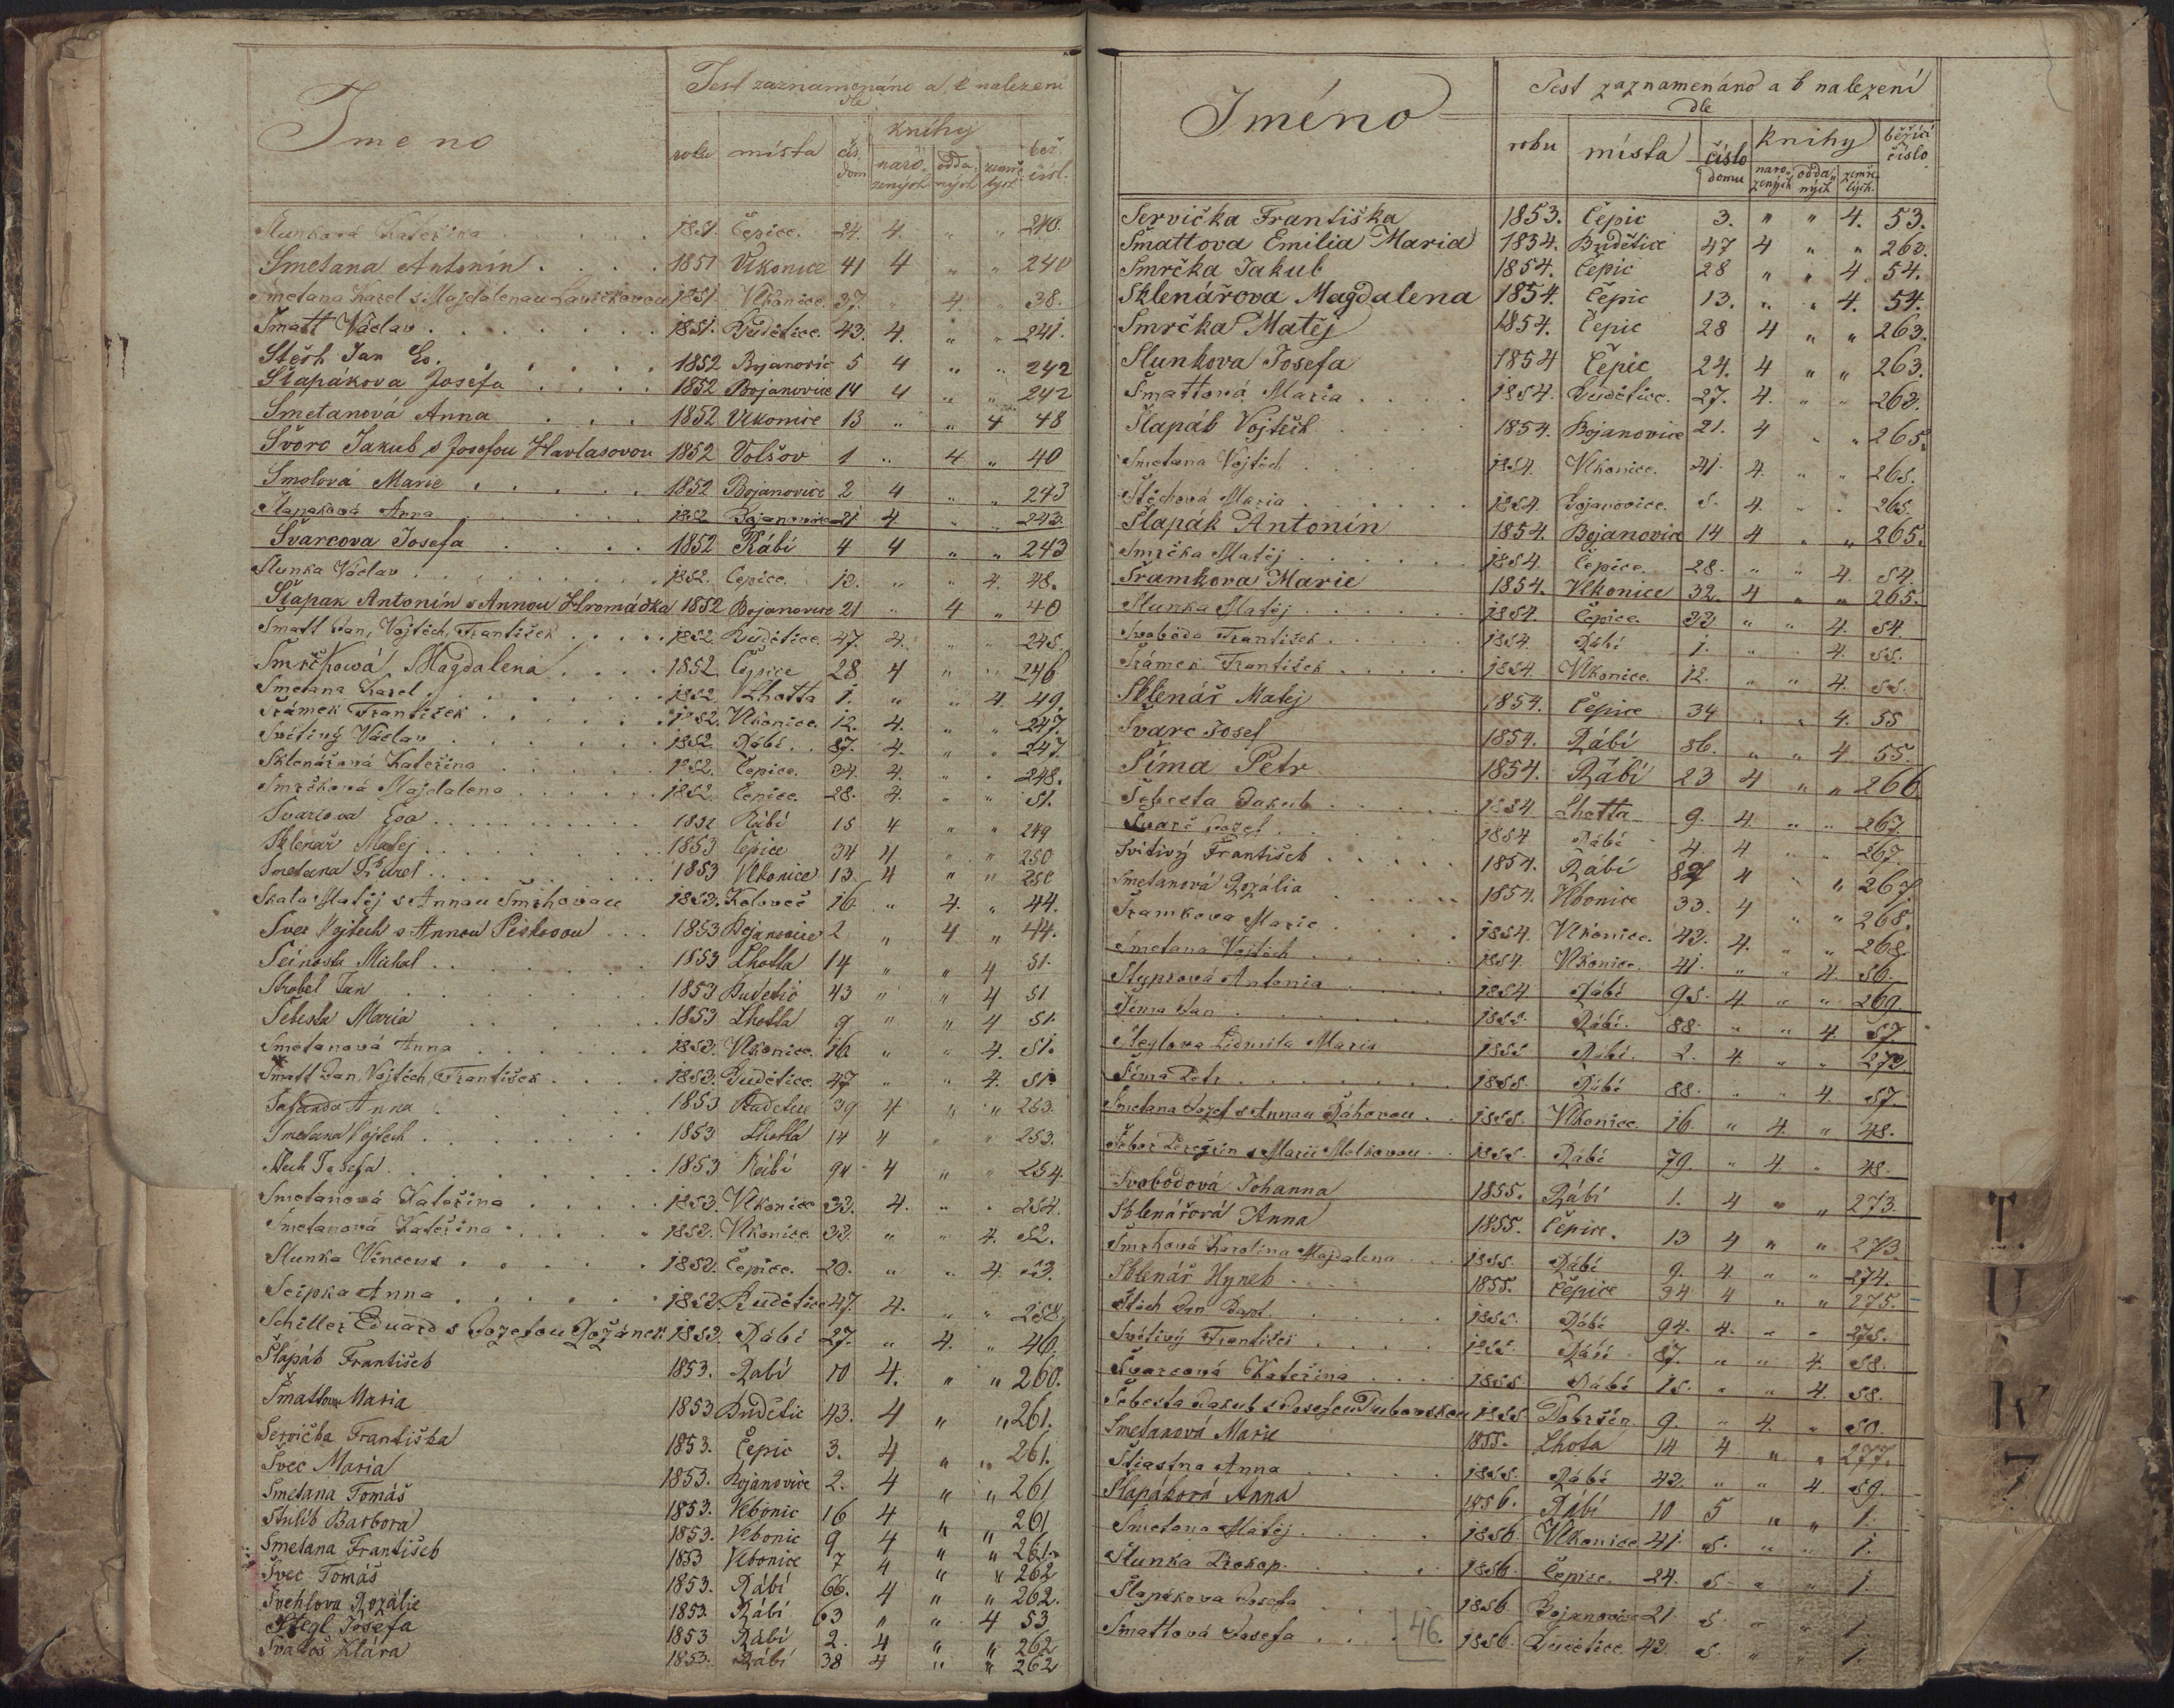 Jmeno
Jest zaznamenáno a, k nalezení
dle
roku místa čís. dom. knihy naro-zených odda-ných zemře-lých běž. čísl.
Slunková Kateřina 1851. Čepice. 24. 4. " " 240.
Smetana Antonín 1851 Vlkonice 41 4 " " 240
Smetana Karel s Majdalenau Lavičkovou 1851. Vlkonice. 37. " 4. " 38.
Šmatt Václav 1851. Budětice. 43. 4. " " 241.
Stěch Jan Ev. 1852 Bojanovic 5 4 " " 242
Šlapákova Josefa 1852 Bojanovice 14 4 " " 242
Smetanová Anna 1852 Vlkonice 13 " " 4 48
Švorc Jakub s Josefou Havlasovou 1852 Volšov 1 " 4. " 40
Smolová Marie 1852 Bojanovice 2 4 " " 243
Šlapaková Anna 1852 Bojanovice 21 4. " " 243.
Švarcova Josefa 1852 Rábí 4 4 " " 243
Slunka Václav 1852. Čepice. 12. " " 4. 48.
Šlapak Antonín s Annou Hromádka 1852 Bojanovice 21 " 4 " 40
Šmatt Jan, Vojtěch, František 1852. Budětice. 47. 4. " " 245.
Smrčkowá Magdalena 1852 Čepice 28 4 " " 246
Smetana Karel 1852. Lhotta 1. " " 4. 49.
Šrámek František 1852. Vlkonice. 12. 4. " " 247.
Svitivý Václav 1852. Rábí. 87. 4. " " 247.
Sklenářová Kateřina 1852. Čepice. 34. 4. " " 248.
Smrčková Majdalena 1852. Čepice. 28. 4. " " 51.
Svarcova Eva 1852 Rábí 15 4 " " 249
Sklenář Matěj 1853 Čepice 34 4 " " 250
Smetana Karel 1853 Vlkonice 13. 4 " " 250
Skala Matěj s Annau Smrhovau 1853. Koloveč 16. " 4. " 44.
Švec Vojtech s Annou Peškovou 1853 Bojanovice 2 " 4 " 44.
Šeinosta Michal 1853 Lhotta 14 " " 4 51.
Strobel Jan 1853 Budetic 43 " " 4 51
Šebesta Maria 1853 Lhotta 9 " " 4 51.
Smetanová Anna 1853. Vlkonice. 16 " " 4. 51.
Šmatt Jan, Vojtěch, František 1853. Budětice. 47 " " 4. 51.
Šafanda Anna 1853 Budetice 39 4 " " 253.
Smetana Vojtech 1853 Lhotta 14 4 " " 253.
Stech Josefa 1853 Rábí 94 4 " " 254.
Smetanová Kateřina 1853. Vlkonice 33. 4. " " 254.
Smetanová Kateřina 1853. Vlkonice. 33. " " 4. 52.
Slunka Vincenc 1853. Čepice. 20. " " 4. 53.
Scipka Anna 1853. Budětice 47. 4. " " 258.
Schiller Eduard s Jozefou Rožánek 1853. Rábí 27. " 4. " 46.
Šlapák František 1853. Rabí 10 4. " " 260.
Šmattova Maria 1853 Budětic 43. 4 " " 261.
Servička Františka 1853. Čepic 3. 4 " " 261.
Švec Maria 1853. Bojanovice 2. 4 " " 261
Smetana Tomáš 1853. Vlkonic 16 4 " " 261
Stulík Barbora 1853. Vlkonic 9 4 " " 261.
Smetana František 1853 Vlkonice 7 4 " " 262
Švec Tomáš 1853. Rábí 66. 4 " " 262.
Švehlova Rozálie 1853. Rábí 63 " " 4 53
Stegl Josefa 1853 Rábí 2. 4 " " 262
Svatoš Klára 1853. Rábí 38 4 " " 262
Jméno
Jest zaznamenáno a k nalezení
dle
roku místa číslo domu knihy naro-zených odda-ných zemře-lých běžící číslo
Servička Františka 1853. Čepic 3. " " 4. 53.
Šmattova Emilia Maria 1854. Budětice 47 4 " " 262.
Smrčka Jakub 1854. Čepic 28 " " 4. 54.
Sklenářova Magdalena 1854. Čepic 13. " " 4. 54.
Smrčka Matěj 1854. Čepic 28 4 " " 263.
Slunkova Josefa 1854 Čepic 24. 4 " " 263.
Šmattová Maria 1854. Budětice. 27. 4. " " 263.
Šlapák Vojtěch 1854. Bojanovice 21. 4 " " 265.
Smetana Vojtěch 1854. Vlkonice. 41. 4. " " 265.
Štěchová Maria 1854. Bojanovice. 5. 4. " " 265.
Šlapák Antonín 1854. Bojanovice 14 4 " " 265.
Smrčka Matěj 1854. Čepice. 28. " " 4. 54.
Šramkova Marie 1854. Vlkonice 32. 4 " " 265.
Slunka Matěj 1854. Čepice. 33 " " 4. 54.
Svoboda František 1854. Rábí 1. " " 4. 55.
Šrámek František 1854. Vlkonice. 12. " " 4. 55.
Sklenář Matej 1854. Čepice 34 " " 4. 55
Švarc Josef 1854. Rábí 86. " " 4. 55.
Šíma Petr 1854. Rábí 23 4 " " 266
Šebesta Jakub 1854 Lhotta 9. 4. " " 267.
Švarc Jozef 1854 Rábí 4. 4 " " 267.
Svitivý František 1854. Rábí 87 4 " " 267.
Smetanová Rozália 1854. Vlkonice 33. 4 " " 268.
Šramkova Marie 1854. Vlkonice. 42. 4. " " 268.
Smetana Vojtěch 1854. Vlkonice. 41. " " 4. 56.
Styprová Antonia 1854 Rábí 95. 4 " " 269.
Šíma Jan 1855. Rábí. 88. " " 4. 57.
Steglova Lidmila Maria 1855 Rábí. 2. 4. " " 272.
Šíma Petr 1855. Rábí 88. " " 4. 57.
Smetana Jozef s Annau Ráhovou 1855. Vlkonice. 16. " 4. " 48.
Šebor Peregrin s Marii Melkovou 1855. Rábí 79. " 4. " 48.
Svobodová Johanna 1855. Rábí 1. 4 " " 273.
Sklenářová Anna 1855. Čepice. 13 4 " " 273.
Smrhová Karolina Majdalena 1855. Rábí 9. 4. " " 274.
Sklenář Hynek 1855. Čepice 34 4 " " 275.
Štěch Jan Bapt. 1855. Rábí 94. 4. " " 275.
Svítivý František 1855. Rábí 87. " " 4. 58.
Švarcová Kateřina 1855 Rábí 15. " " 4. 58.
Šebesta Jakub s Josefou Dubovskou 1855. Dobršín 9. " 4. " 50.
Smetanová Marie 1855. Lhota 14 4 " " 277.
Štiastna Anna 1855. Rábí 42. " " 4. 59.
Šlapáková Anna 1856. Rábí 10 5 " " 1.
Smetana Matěj 1856. Vlkonice 41. 5. " " 1.
Slunka Prokop 1856. Čepice. 24. 5. " " 1.
Šlapákova Josefa 1856 Bojanovice 21 5. " " 1.
Šmattová Josefa 1856. Budětice. 43. 5. " " 1.
46.
T.
U
W
Z